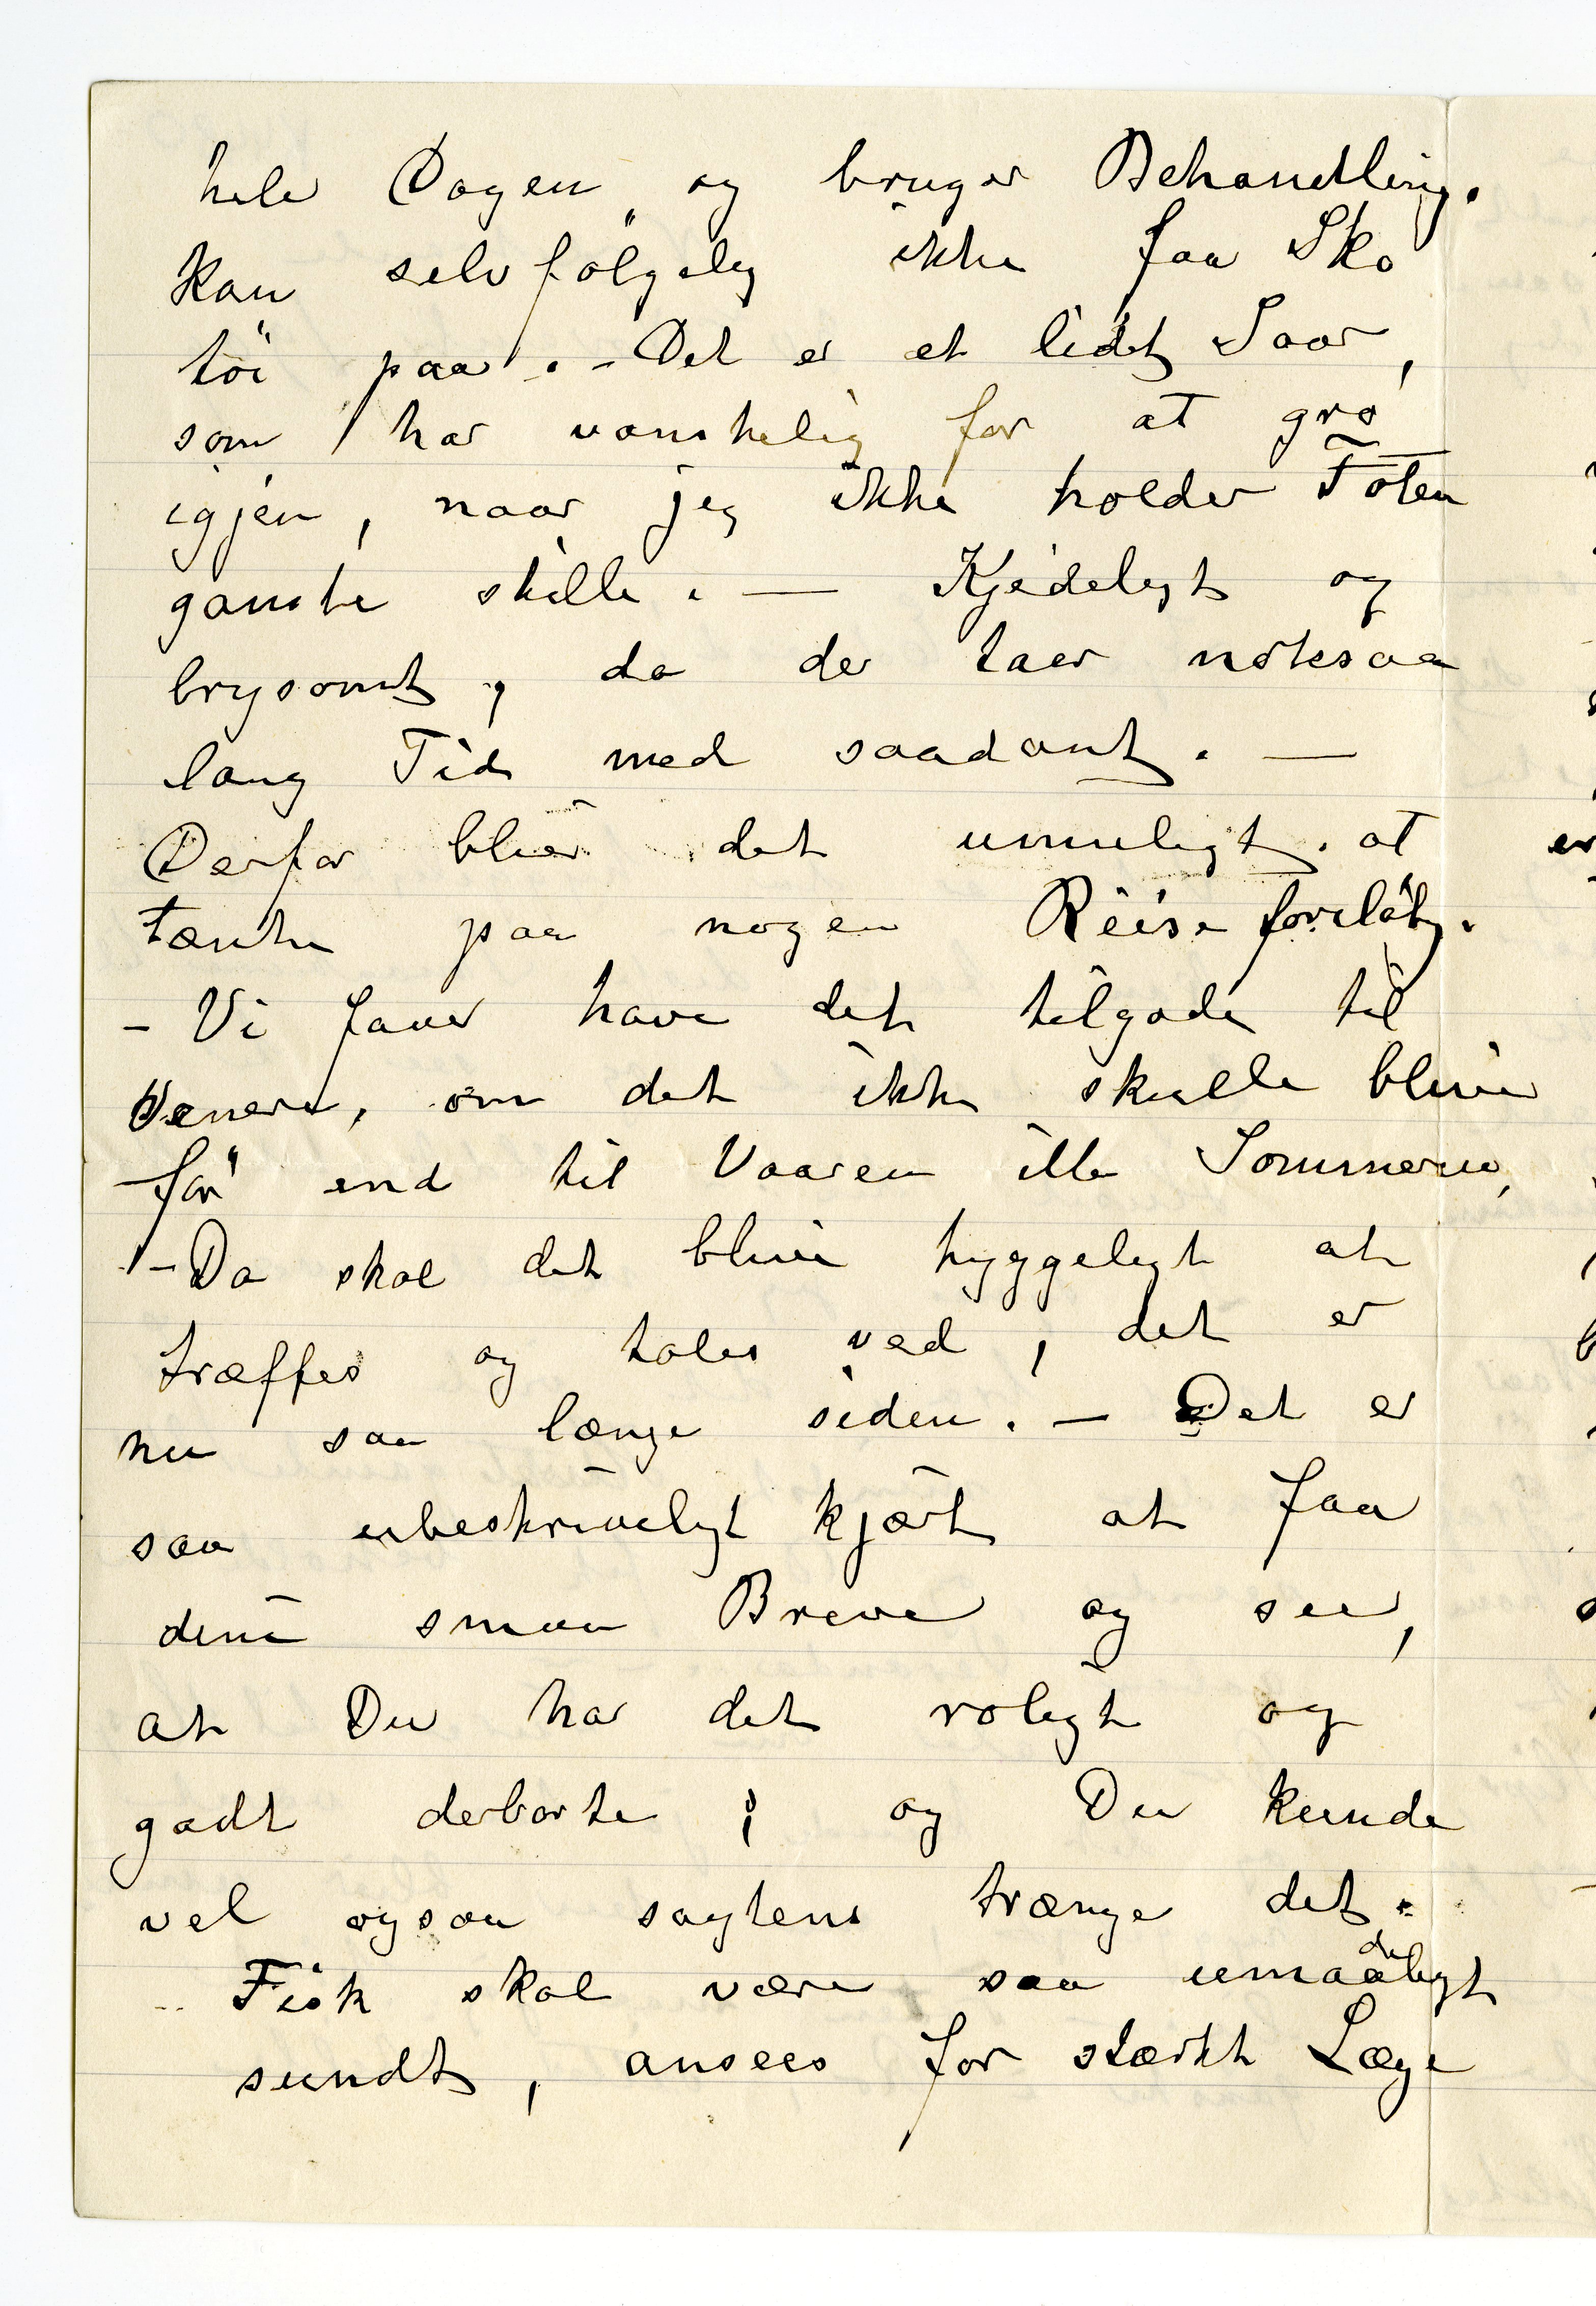 hele Dagen og bruger Behandling.
Kan selvfölgelig ikke faa Sko
töi paa. - Det er et lidet Saar,
som har vanskelig for at gro
igjen, naar jeg ikke holder Foten
ganske stille. — Kjedeligt og
brysomt, da der taer nöksaa
lang Tid med saadant. —
Derfor bliver det umuligt at
tænke paa nogen Reise forelöbig.
- Vi faaer have det tilgode til
senere, om det ikke skulle blive
för end til Vaaren ille Sommeren,
- Da skal det blive hyggeligt at
træffes og tales ved, det er
nu saa længe siden. - Det er
saa ubeskriveligt kjært at faa
dine smaa Breve og see,
at Du har det roligt og
godt derborte; og Du kunde
vel ogsaa sagtens trænge det.
Fisk skal være saa umaadeligt
sundt, ansees for stærkt Læge